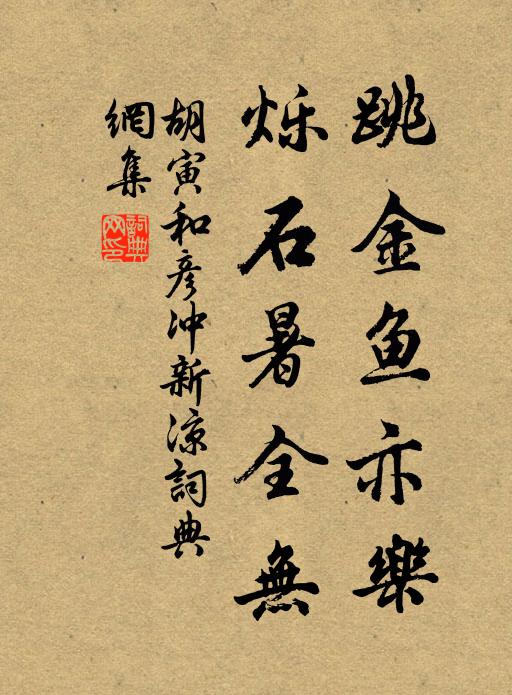 跳金鱼亦樂
烁石暑全無
胡寅和彦冲新凉詞典
網集
詞典网印